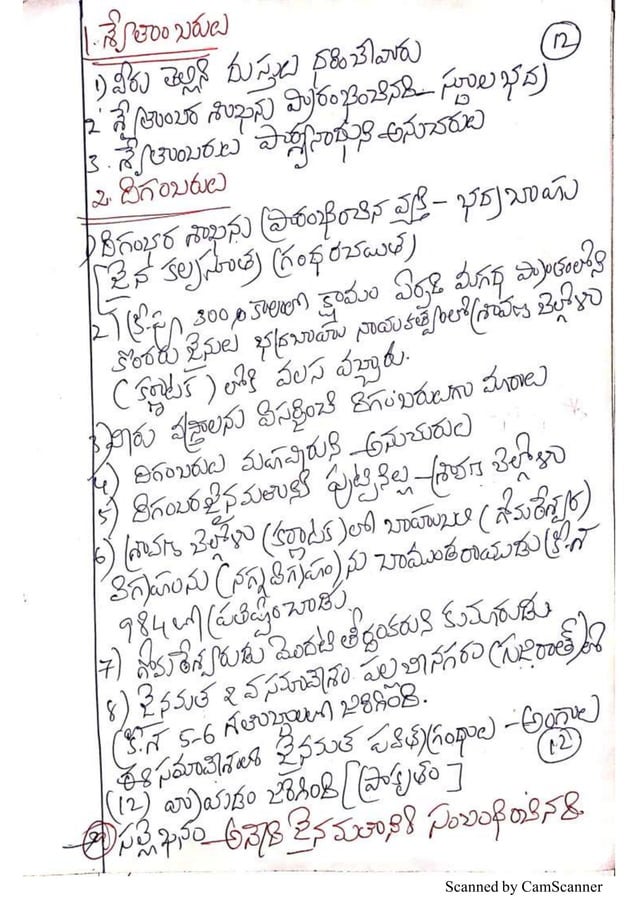 1. శ్వేతాంబరులు
12
1) వీరు తెల్లని దుస్తులు ధరించేవారు
2. శ్వేతాంబర శాఖను ప్రారంభించినది - స్థూలభద్ర
3. శ్వేతాంబరులు పార్శ్వనాథుని అనుచరులు
2. దిగంబరులు
1) దిగంబర శాఖను ప్రారంభించిన వ్యక్తి - భద్రబాహు
[జైన కల్పసూత్ర గ్రంథ రచయిత]
2) క్రీ.పూ 300 కాలంలో క్షామం ఏర్పడి మగధ ప్రాంతంలోని
కొందరు జైనులు భద్రబాహు నాయకత్వంలో శ్రావణ బెళ్గోళ
(కర్ణాటక) లోకి వలస వచ్చారు.
3) వీరు వస్త్రాలను విసర్జించి దిగంబరులుగా మారారు
4) దిగంబరులు మహావీరుని అనుచరులు
5) దిగంబర జైనమతానికి పుట్టినిల్లు - శ్రావణ బెళ్గోళ
6) శ్రావణ బెళ్గోళ (కర్ణాటక) లో బాహుబలి (గోమఠేశ్వర)
విగ్రహంను (నగ్నవిగ్రహం) ను చాముండరాయుడు క్రీ.శ
984లో ప్రతిష్టించాడు
7) గోమఠేశ్వరుడు మొదటి తీర్థంకరుని కుమారుడు
8) జైనమత 2వ సమావేశం వలభీనగరం (గుజరాత్) లో
క్రీ.శ 5-6 శతాబ్దంలో జరిగింది.
ఈ సమావేశంలో జైనమత పవిత్ర గ్రంథాలు - అంగాలు
12
(12) వ్రాయడం జరిగింది [ప్రాకృతం]
సల్లేఖనం - అనేది జైనమతానికి సంబంధించినది
Scanned by CamScanner